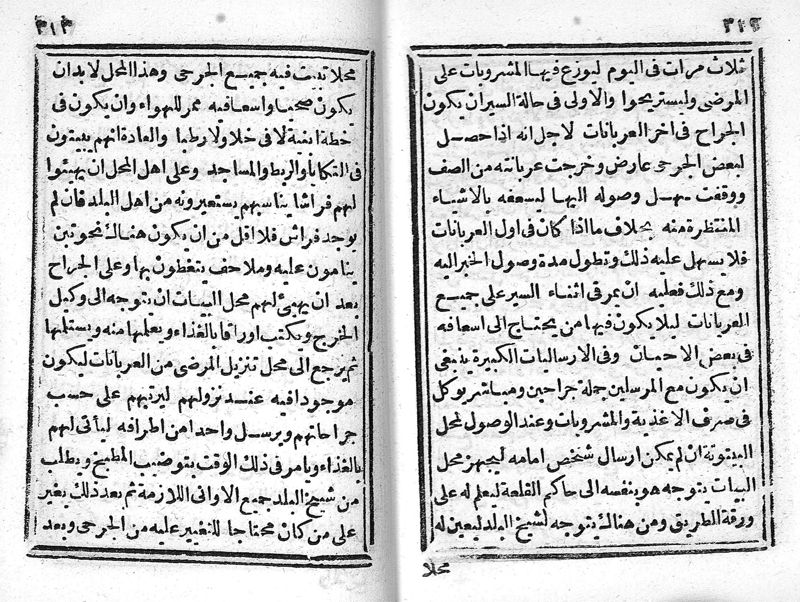 ٣١٢
ثلاث مرات فى اليوم ليوزع فيها المشروبات على
المرضى وليستريحوا والاولى فى حالة السيران يكون
الجراح فى اخر العربانات لاجل انه اذا حصل
لبعض الجرحى عارض وخرجت عربانته من الصف
ووقفت سهل وصوله اليها ليسعفه بالاشياء
المنتظرة منه بخلاف ما اذا كان فى اول العربانات
فلا يسهل عليه ذلك وتطول مدة وصول الخبر اليه
ومع ذلك فعليه ان يمر فى اثناء السير على جميع
العربانات ليلا يكون فيها من يحتاج الى اسعافه
فى بعض الاحيان وفى الارساليات الكبيرة ينبغى
ان يكون مع المرسلين جملة جراحين ومباشر يوكل
فى صرف الاغذية والمشروبات وعند الوصول لمحل
البيتوتة ان لم يمكن ارسال شخص امامه ليجهز محل
البيات يتوجه هو بنفسه الى حاكم القلعة ليعلم له على
ورقة الطريق ومن هناك يتوجه لشيخ البلد ليعين له
محلا
٣١٣
محلا تبيت فيه جميع الجرحى وهذا المحل لابد ان
يكون صحيا واسعا فيه ممر للهواء وان يكون فى
خطة انيقة لا فى خلا ولا رطبا والعادة انهم يبيتون
فى التكايا والربط والمساجد وعلى اهل المحل ان يهيئوا
لهم فراشا يناسبهم يستعيرونه من اهل البلد فان لم
يوجد فراش فلا اقل من ان يكون هناك نحو تبن
ينامون عليه وملاحف يتغطون بها وعلى الجراح
بعد ان يهيئ لهم محل البيات ان يتوجه الى وكيل
الخرج ويكتب اوراقا بالغذاء ويعلمها منه ويستلمها
ثم يرجع الى محل تنزيل المرضى من العربانات ليكون
موجودا فيه عند نزولهم ليرتبهم على حسب
جراحاتهم ويرسل واحدا من اطرافه ليأتى لهم
بالغذاء ويامر فى ذلك الوقت بتوضيب المطبخ ويطلب
من شيخ البلد جميع الاوانى اللازمة ثم بعد ذلك يغير
على من كان محتاجا للتغيير عليه من الجرحى وبعد